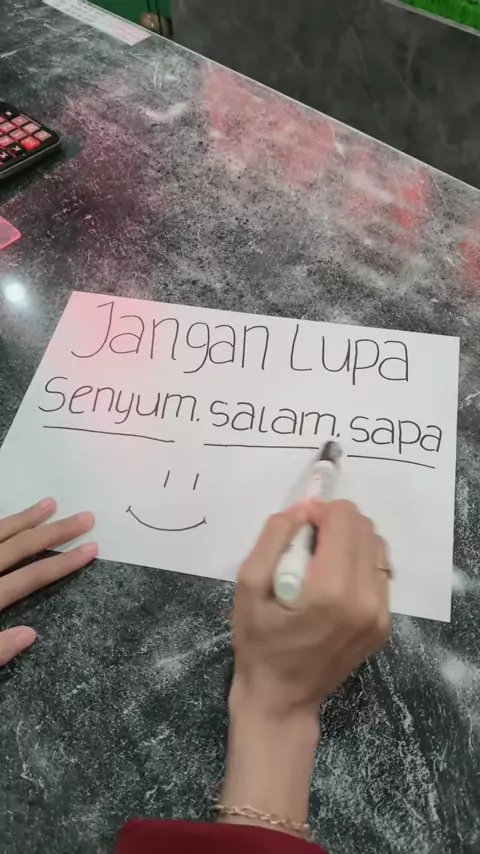 Jangan Lupa
Senyum. salam. sapa